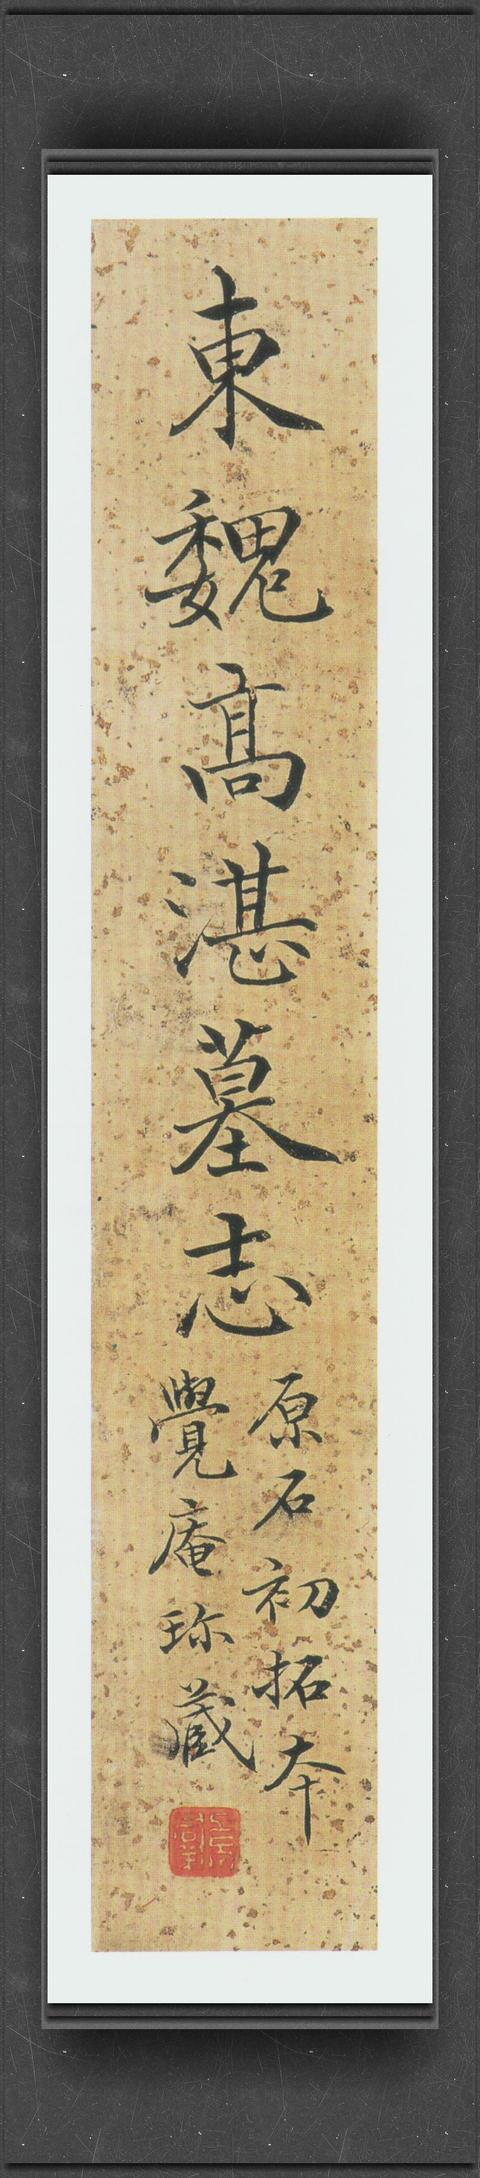 東魏高湛墓志
原石初拓夲
覺庵珎藏